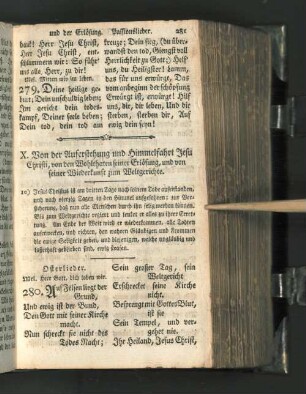 und der Erlösung. Passionslieder. 281
dank! Herr Jesu Christ,
Herr Jesu Christ, ent-
schlummern wir: So führe
uns alle, Herr, zu dir!
279. Deine heilige ge-
burt; Dein unschuldig leben;
Im gericht dein todes-
kampf, Deiner seele beben;
Dein tod, dein tod am
kreuze; Dein sieg, du über-
wandst den tod, Giengst voll
Herrlichkeit zu Gott; Hilf
uns, du Heiligster! Lamm,
das für uns erwürgt, Das
vom anbeginn der schöpfung
Erwürgt ist, erwürgt! Hilf
uns, dir, dir leben, Und die
sterben, sterben dir, Auf
ewig dein seyn!
X. Von der Auferstehung und Himmelfahrt Jesu
Christi, von den Wohlthaten seiner Erlösung, und von
seiner Wiederkunft zum Weltgerichte.
10) Jesus Christus ist am dritten Tage nach seinem Tode auferstanden,
und nach vierzig Tagen in den Himmel aufgefahren: zur Ver-
sicherung, daß nun alle Menschen durch ihn selig werden können.
Bis zum Weltgerichte regieret und leitet er alles zu ihrer Erret-
tung. Am Ende der Welt wird er wiederkommen, alle Todten
auferwecken, und richten, den wahren Gläubigen, und Frommen
die ewige Seligkeit geben, und diejenigen, welche ungläubig und
lasterhaft geblieben sind, ewig strafen.
Osterlieder.
Mel. Herr Gott, dich loben wir.
280. Auf Felsen liegt der
Grund,
Und ewig ist der Bund,
Den Gott mit seiner Kirche
macht.
Nun schreckt sie nicht des
Todes Nacht;
Sein großer Tag, sein
Weltgericht
Erschrecket seine Kirche
nicht.
Besprengt mit Gottes Blut,
ist sie
Sein Tempel, und ver-
gehet nie.
Ihr Heiland, Jesus Christ,